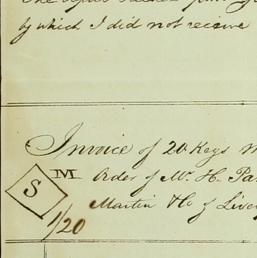 by which I did not receive
Invoice of 20 Kegs
M Order of Mr. H. Pa
S
Martin & Co of Live
1/20